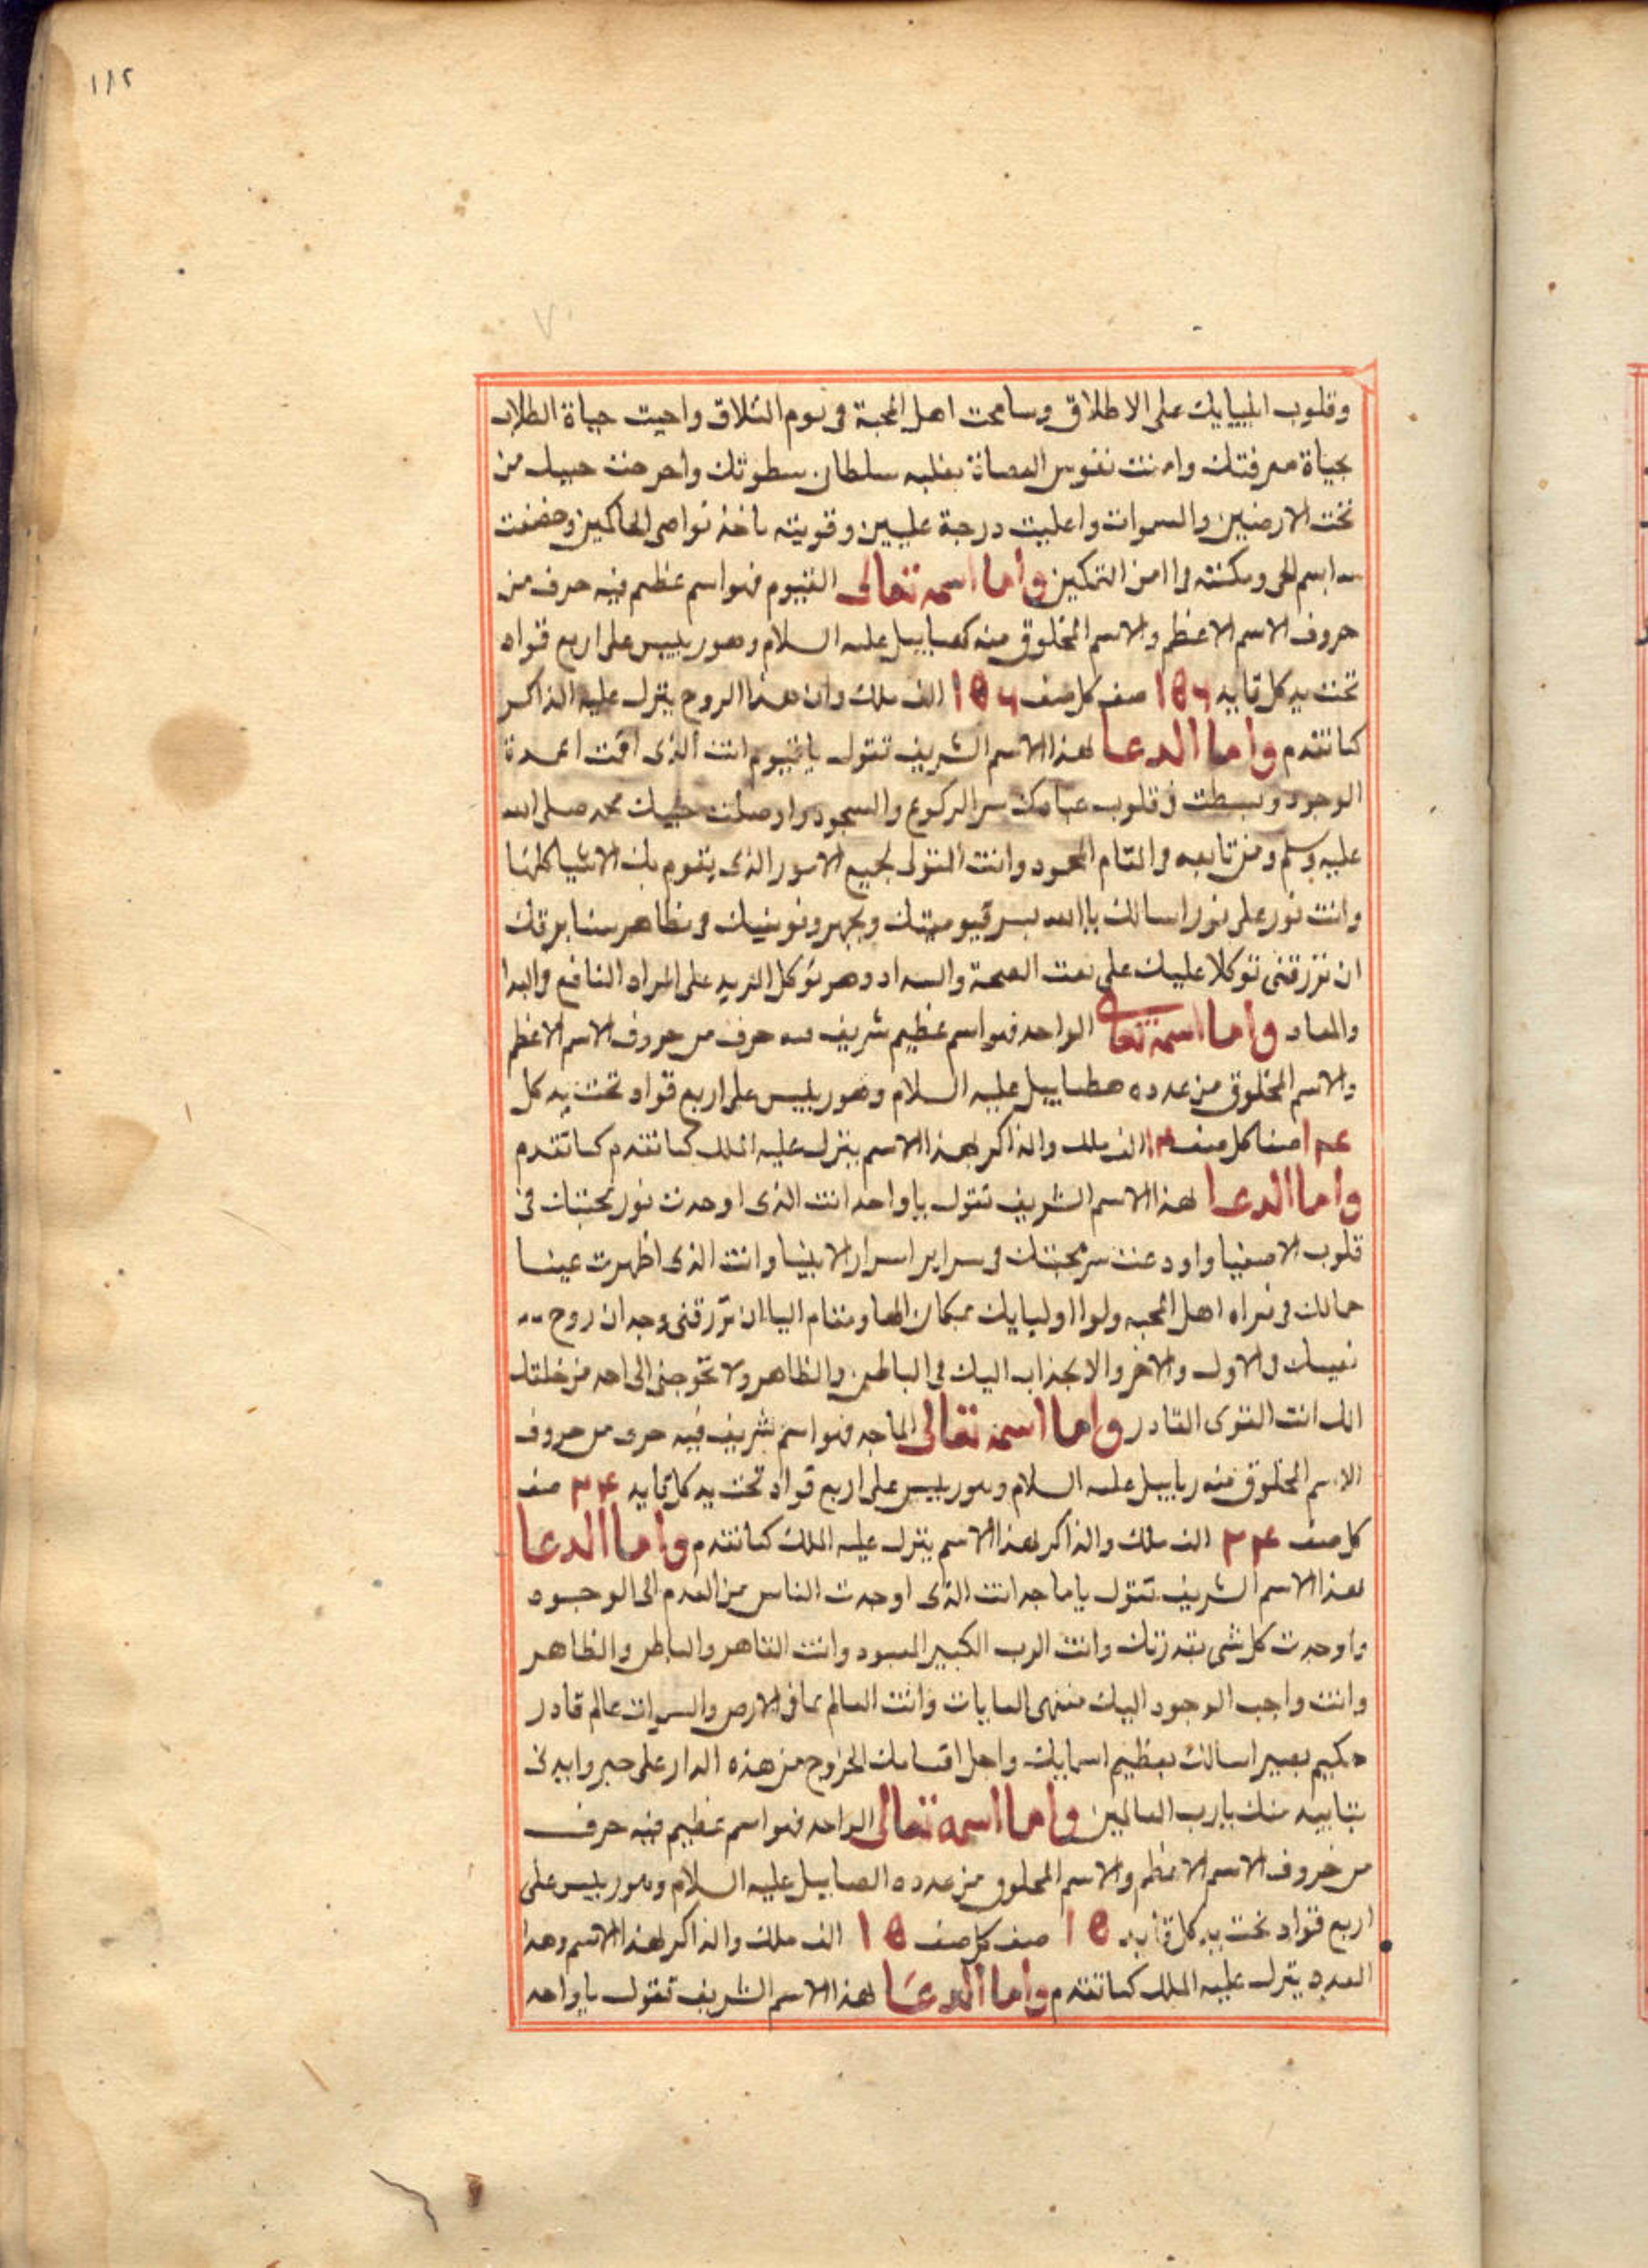 ١٨٢
وقلوب انبيايك على الاطلاق وسامحت اهل المحبة فى يوم التلاق واحيت حياة الطلاب
بحياة معرفتك وامنت نفوس العصاة بغلبه سلطان سطوتك واخرجت حبيك من
تحت الارضين والسموات واعليت درجة عليين وقويته باخذ نواصى الحاكمين وخضعت
اسم الحى ومكنته التمكين واما اسمه تعالى القيوم فهو اسم عظيم فيه حرف من
حروف الاسم الاعظم والاسم المخلوق منه عليه السلام وهو رييس على اربع قواد
تحت يد كل قايد ١٥٦ صف كل صف ١٥٦ الف ملك وان هذا الروح ينزل عليه الذاكر
كما تقدم واما الدعا لهذا الاسم الشريف تقول يا قيوم انت الذى اقمت اعمدة
الوجود وبسطت فى قلوب عبادك سر الركوع والسجود واوصلت حبيبك محمد صلى الله
عليه وسلم ومن تابعه فى المقام المحمود وانت المتولى لجميع الامور الذى يقوم بك الاشيا كلها
وانت نور على نور اسالك يا الله بسر قيوميتك وبجهر فى مظاهر سنا برقك
ان ترزقنى توكلا عليك على نعت الصحة والسداد وهو توكل المريد على المراد النافع فى المبدا
والمعاد واما اسمه تعالى الواحد فهو اسم عظيم شريف فيه حرف من حروف الاسم الاعظم
والاسم المخلوق من عدده هطاييل عليه السلام وهو رييس على اربع قواد تحت يد كل
صفا كل صف الف ملك والذاكر لهذا الاسم ينزل عليه الملك كما تقدم كما تقدم
واما الدعا لهذا الاسم الشريف تقول يا واحد انت الذى اوجدت نور محبتك فى
قلوب الاصفيا واودعت سر محبتك فى سراير اسرار الانبيا وانت الذى اظهرت عينا
جمالك فى اهل المحبه اوليايك بمكان ومقام ان ترزقنى وجدان روح
فى الاول والاخر والانجذاب اليك فى الباطن والظاهر ولا تحوجنى الى احد من خلقك
انك انت القوى القادر واما اسمه تعالى الماجد فهو اسم شريف فيه حرف من حروف
الاسم المخلوق منه ربابيل عليه السلام وهو رييس على اربع قواد تحت يد كل قايد صف
كل صف الف ملك والذاكر لهذا الاسم ينزل عليه الملك كما تقدم واما الدعا
لهذا الاسم الشريف تقول يا ماجد انت الذى اوجدت الناس من العدم الى الوجود
واوجدت كل شى بقدرتك وانت الرب الكبير المعبود وانت القاهر والباطن والظاهر
وانت واجب الوجود اليك منتهى الغايات وانت العالم بما فى الارض والسموات عالم قادر
حكيم بصير اسالك بعظيم اسمايك واجل اقسامك الخروج من هذه الدار على خير وايدنى
بتاييد منك يا رب العالمين واما اسمه تعالى الواحد فهو اسم عظيم فيه حرف
من حروف الاسم الاعظم والاسم المخلوق من عدده عليه السلام وهو رييس على
اربع قواد تحت يد كل قايد ١٥ صف كل صف ١٥ الف ملك والذاكر لهذا الاسم وهذا
العدد ينزل عليه الملك كما تقدم واما الدعا لهذا الاسم الشريف تقول يا واحد